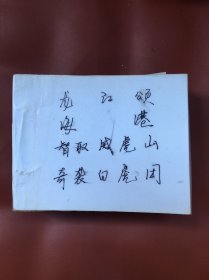 龙江颂
海港
智取威虎山
奇袭白虎团